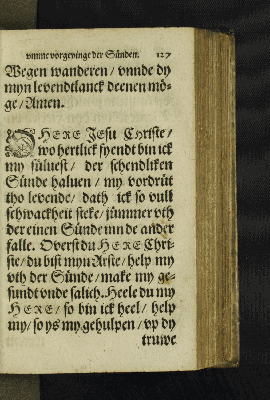 vmme vorgevinge der Sünden. 127
Wegen wanderen / vnnde dy
myn levendtlanck deenen mö-
ge / Amen.
O HERE JEsu Christe /
wo hertlick fyendt bin ick
my sülvest / der schendtliken
Sünde haluen / my vordrüt
tho levende / dath ick so vull
schwackheit steke / jümmer vth
der einen Sünde inn de ander
falle. Overst du HERE Chri-
ste / du bist myn Arste / help my
vth der Sünde / make my ge-
sundt vnde salich. Heele du my
HERE / so bin ick heel / help
my / so ys my gehulpen / vp dy
truwe